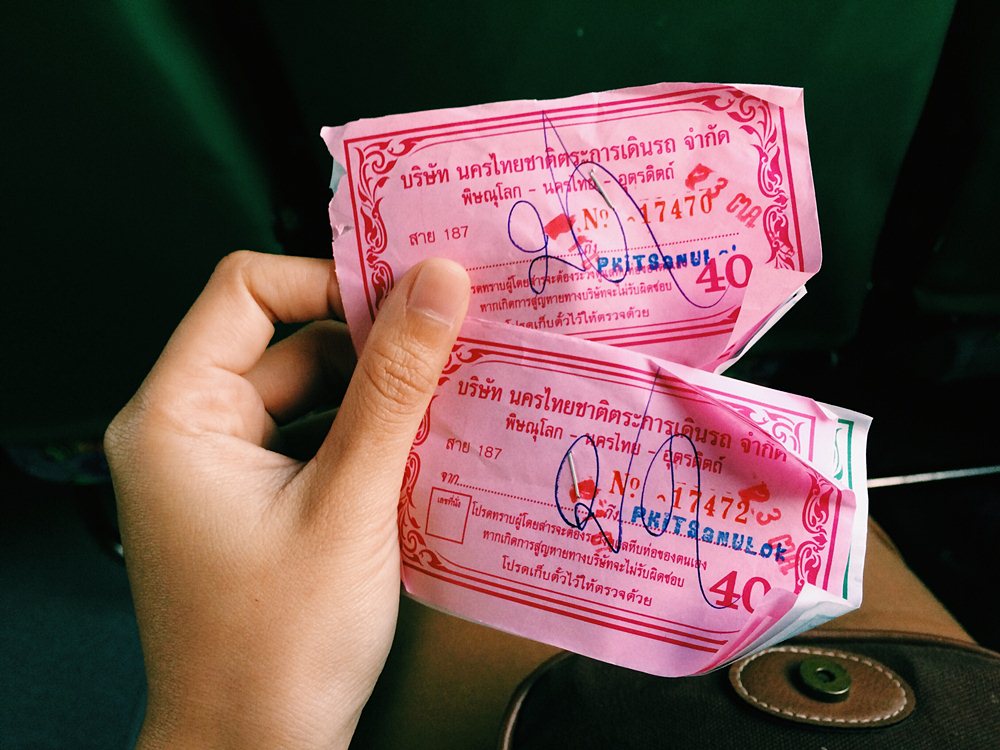 บริษัท นครไทยชาติตระการเดินรถ จำกัด
พิษณุโลก - นครไทย - อุตรดิตถ์
สาย 187
No 17470
ถึง PKITSANULO
โปรดทราบผู้โดยสารจะต้องระวัง
40
หากเกิดการสูญหายทางบริษัทจะไม่รับผิดชอบ
โปรดเก็บตั๋วไว้ให้ตรวจด้วย
บริษัท นครไทยชาติตระการเดินรถ จำกัด
พิษณุโลก - นครไทย - อุตรดิตถ์
สาย 187
No 17472
จาก ถึง PKITSANULOK
เลขที่นั่ง
โปรดทราบผู้โดยสารจะต้องระวังดูแลหีบห่อของตนเอง
หากเกิดการสูญหายทางบริษัทจะไม่รับผิดชอบ
40
โปรดเก็บตั๋วไว้ให้ตรวจด้วย